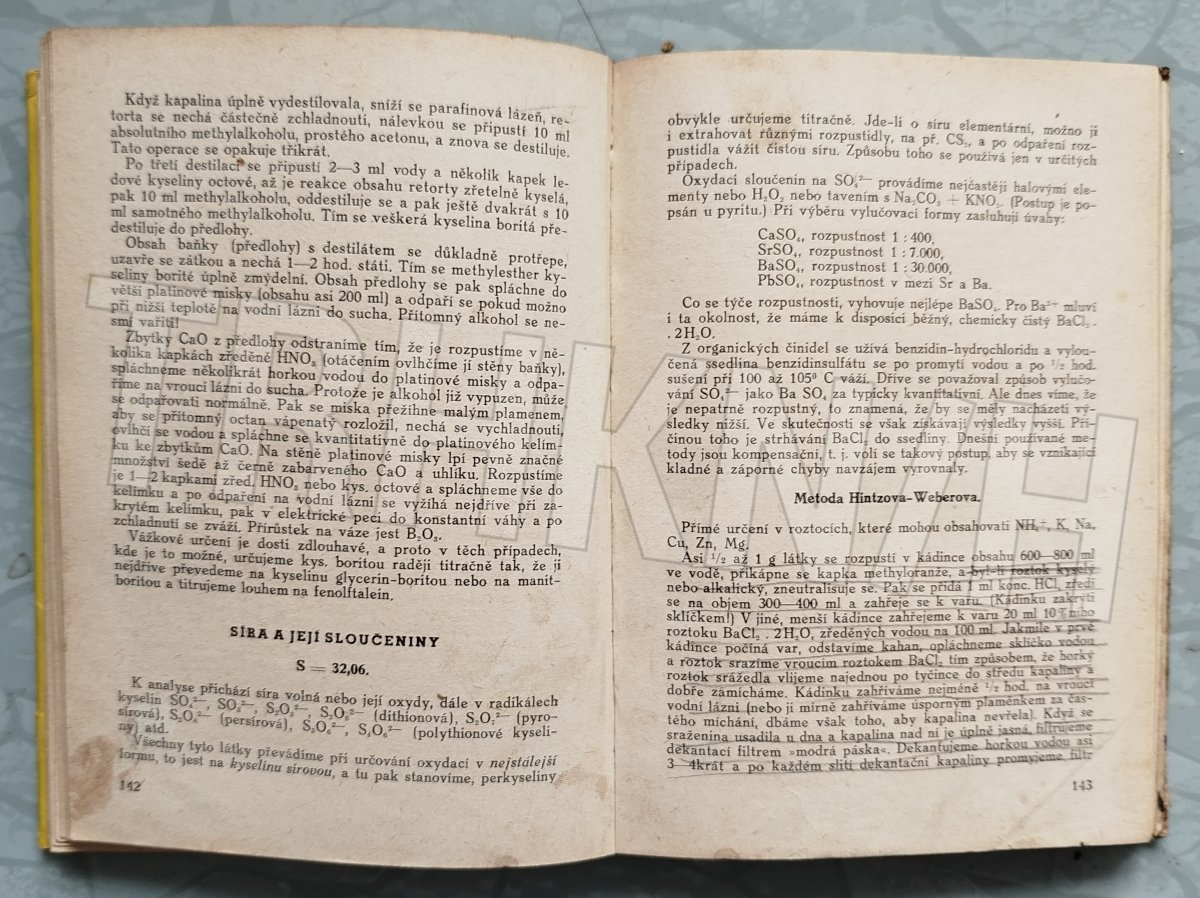 Když kapalina úplně vydestilovala, sníží se parafinová lázeň, re-
torta se nechá částečně zchladnouti, nálevkou se připustí 10 ml
absolutního methylalkoholu, prostého acetonu, a znova se destiluje.
Tato operace se opakuje třikrát.
Po třetí destilaci se připustí 2—3 ml vody a několik kapek le-
dové kyseliny octové, až je reakce obsahu retorty zřetelně kyselá,
pak 10 ml methylalkoholu, oddestiluje se a pak ještě dvakrát s 10
ml samotného methylalkoholu. Tím se veškerá kyselina boritá pře-
destiluje do předlohy.
Obsah baňky (předlohy) s destilátem se důkladně protřepe,
uzavře se zátkou a nechá 1—2 hod. státi. Tím se methylesther ky-
seliny borité úplně zmýdelní. Obsah předlohy se pak spláchne do
větší platinové misky (obsahu asi 200 ml) a odpaří se pokud možno
při nižší teplotě na vodní lázni do sucha. Přítomný alkohol se ne-
smí vařiti!
Zbytky CaO z předlohy odstraníme tím, že je rozpustíme v ně-
kolika kapkách zředěné HNO₃ (otáčením ovlhčíme jí stěny baňky),
spláchneme několikrát horkou vodou do platinové misky a odpa-
říme na vroucí lázni do sucha. Protože je alkohol již vypuzen, může
se odpařovati normálně. Pak se miska přežíhne malým plamenem,
aby se přítomný octan vápenatý rozložil, nechá se vychladnouti,
ovlhčí se vodou a spláchne se kvantitativně do platinového kelím-
ku ke zbytkům CaO. Na stěně platinové misky lpí pevně značné
množství šedě až černě zabarveného CaO a uhlíku. Rozpustíme
je 1—2 kapkami zřed. HNO₃ nebo kys. octové a spláchneme vše do
kelímku a po odpaření na vodní lázni se vyžíhá nejdříve při za-
krytém kelímku, pak v elektrické peci do konstantní váhy a po
zchladnutí se zváží. Přírůstek na váze jest B₂O₃.
Vážkové určení je dosti zdlouhavé, a proto v těch případech,
kde je to možné, určujeme kys. boritou raději titračně tak, že jí
nejdříve převedeme na kyselinu glycerin-boritou nebo na manit-
boritou a titrujeme louhem na fenolftalein.
SÍRA A JEJÍ SLOUČENINY
S = 32,06.
K analyse přichází síra volná nebo její oxydy, dále v radikálech
kyselin SO₃²⁻, SO₄²⁻, S₂O₃²⁻, S₂O₆²⁻ (dithionová), S₂O₇²⁻ (pyro-
sírová), S₂O₈²⁻ (persírová), S₃O₆²⁻, S₄O₆²⁻ (polythionové kyseli-
ny) atd.
Všechny tyto látky převádíme při určování oxydací v nejstálejší
formu, to jest na kyselinu sírovou, a tu pak stanovíme, perkyseliny
142
obvykle určujeme titračně. Jde-li o síru elementární, možno ji
i extrahovat různými rozpustidly, na př. CS₂, a po odpaření roz-
pustidla vážit čistou síru. Způsobu toho se používá jen v určitých
případech.
Oxydaci sloučenin na SO₄²⁻ provádíme nejčastěji halovými ele-
menty nebo H₂O₂ nebo tavením s Na₂CO₃ + KNO₃. (Postup je po-
psán u pyritu.) Při výběru vylučovací formy zasluhují úvahy:
CaSO₄, rozpustnost 1 : 400,
SrSO₄, rozpustnost 1 : 7.000,
BaSO₄, rozpustnost 1 : 30.000,
PbSO₄, rozpustnost v mezí Sr a Ba.
Co se týče rozpustnosti, vyhovuje nejlépe BaSO₄. Pro Ba²⁺ mluví
i ta okolnost, že máme k disposici běžný, chemicky čistý BaCl₂ .
. 2H₂O.
Z organických činidel se užívá benzidin-hydrochloridu a vylou-
čená ssedlina benzidinsulfátu se po promytí vodou a po ½ hod.
sušení při 100 až 105⁰ C váží. Dříve se považoval způsob vylučo-
vání SO₄²⁻ jako Ba SO₄ za typicky kvantitativní. Ale dnes víme, že
je nepatrně rozpustný, to znamená, že by se měly nacházeti vý-
sledky nižší. Ve skutečnosti se však získávají výsledky vyšší. Pří-
činou toho je strhávání BaCl₂ do ssedliny. Dnešní používané me-
tody jsou kompensační, t. j. volí se takový postup, aby se vznikající
kladné a záporné chyby navzájem vyrovnaly.
Metoda Hintzova-Weberova.
Přímé určení v roztocích, které mohou obsahovati NH₄⁺, K, Na,
Cu, Zn, Mg.
Asi ½ až 1 g látky se rozpustí v kádince obsahu 600—800 ml
ve vodě, přikápne se kapka methyloranže, a byl-li roztok kyselý
nebo alkalický, zneutralisuje se. Pak se přidá 1 ml konc. HCl, zředí
se na objem 300—400 ml a zahřeje se k varu. (Kádinku zakrýti
sklíčkem!) V jiné, menší kádince zahřejeme k varu 20 ml 10%ního
roztoku BaCl₂ . 2H₂O, zředěných vodou na 100 ml. Jakmile v prvé
kádince počíná var, odstavíme kahan, opláchneme sklíčko vodou
a roztok srazíme vroucím roztokem BaCl₂ tím způsobem, že horký
roztok srážedla vlijeme najednou po tyčince do středu kapaliny a
dobře zamícháme. Kádinku zahříváme nejméně ½ hod. na vroucí
vodní lázni (nebo ji mírně zahříváme úsporným plaménkem za čas-
tého míchání, dbáme však toho, aby kapalina nevřela). Když se
sraženina usadila u dna a kapalina nad ní je úplně jasná, filtrujeme
dekantací filtrem »modrá páska«. Dekantujeme horkou vodou asi
3—4krát a po každém slití dekantační kapaliny promyjeme filtr
143
TRHKNIH